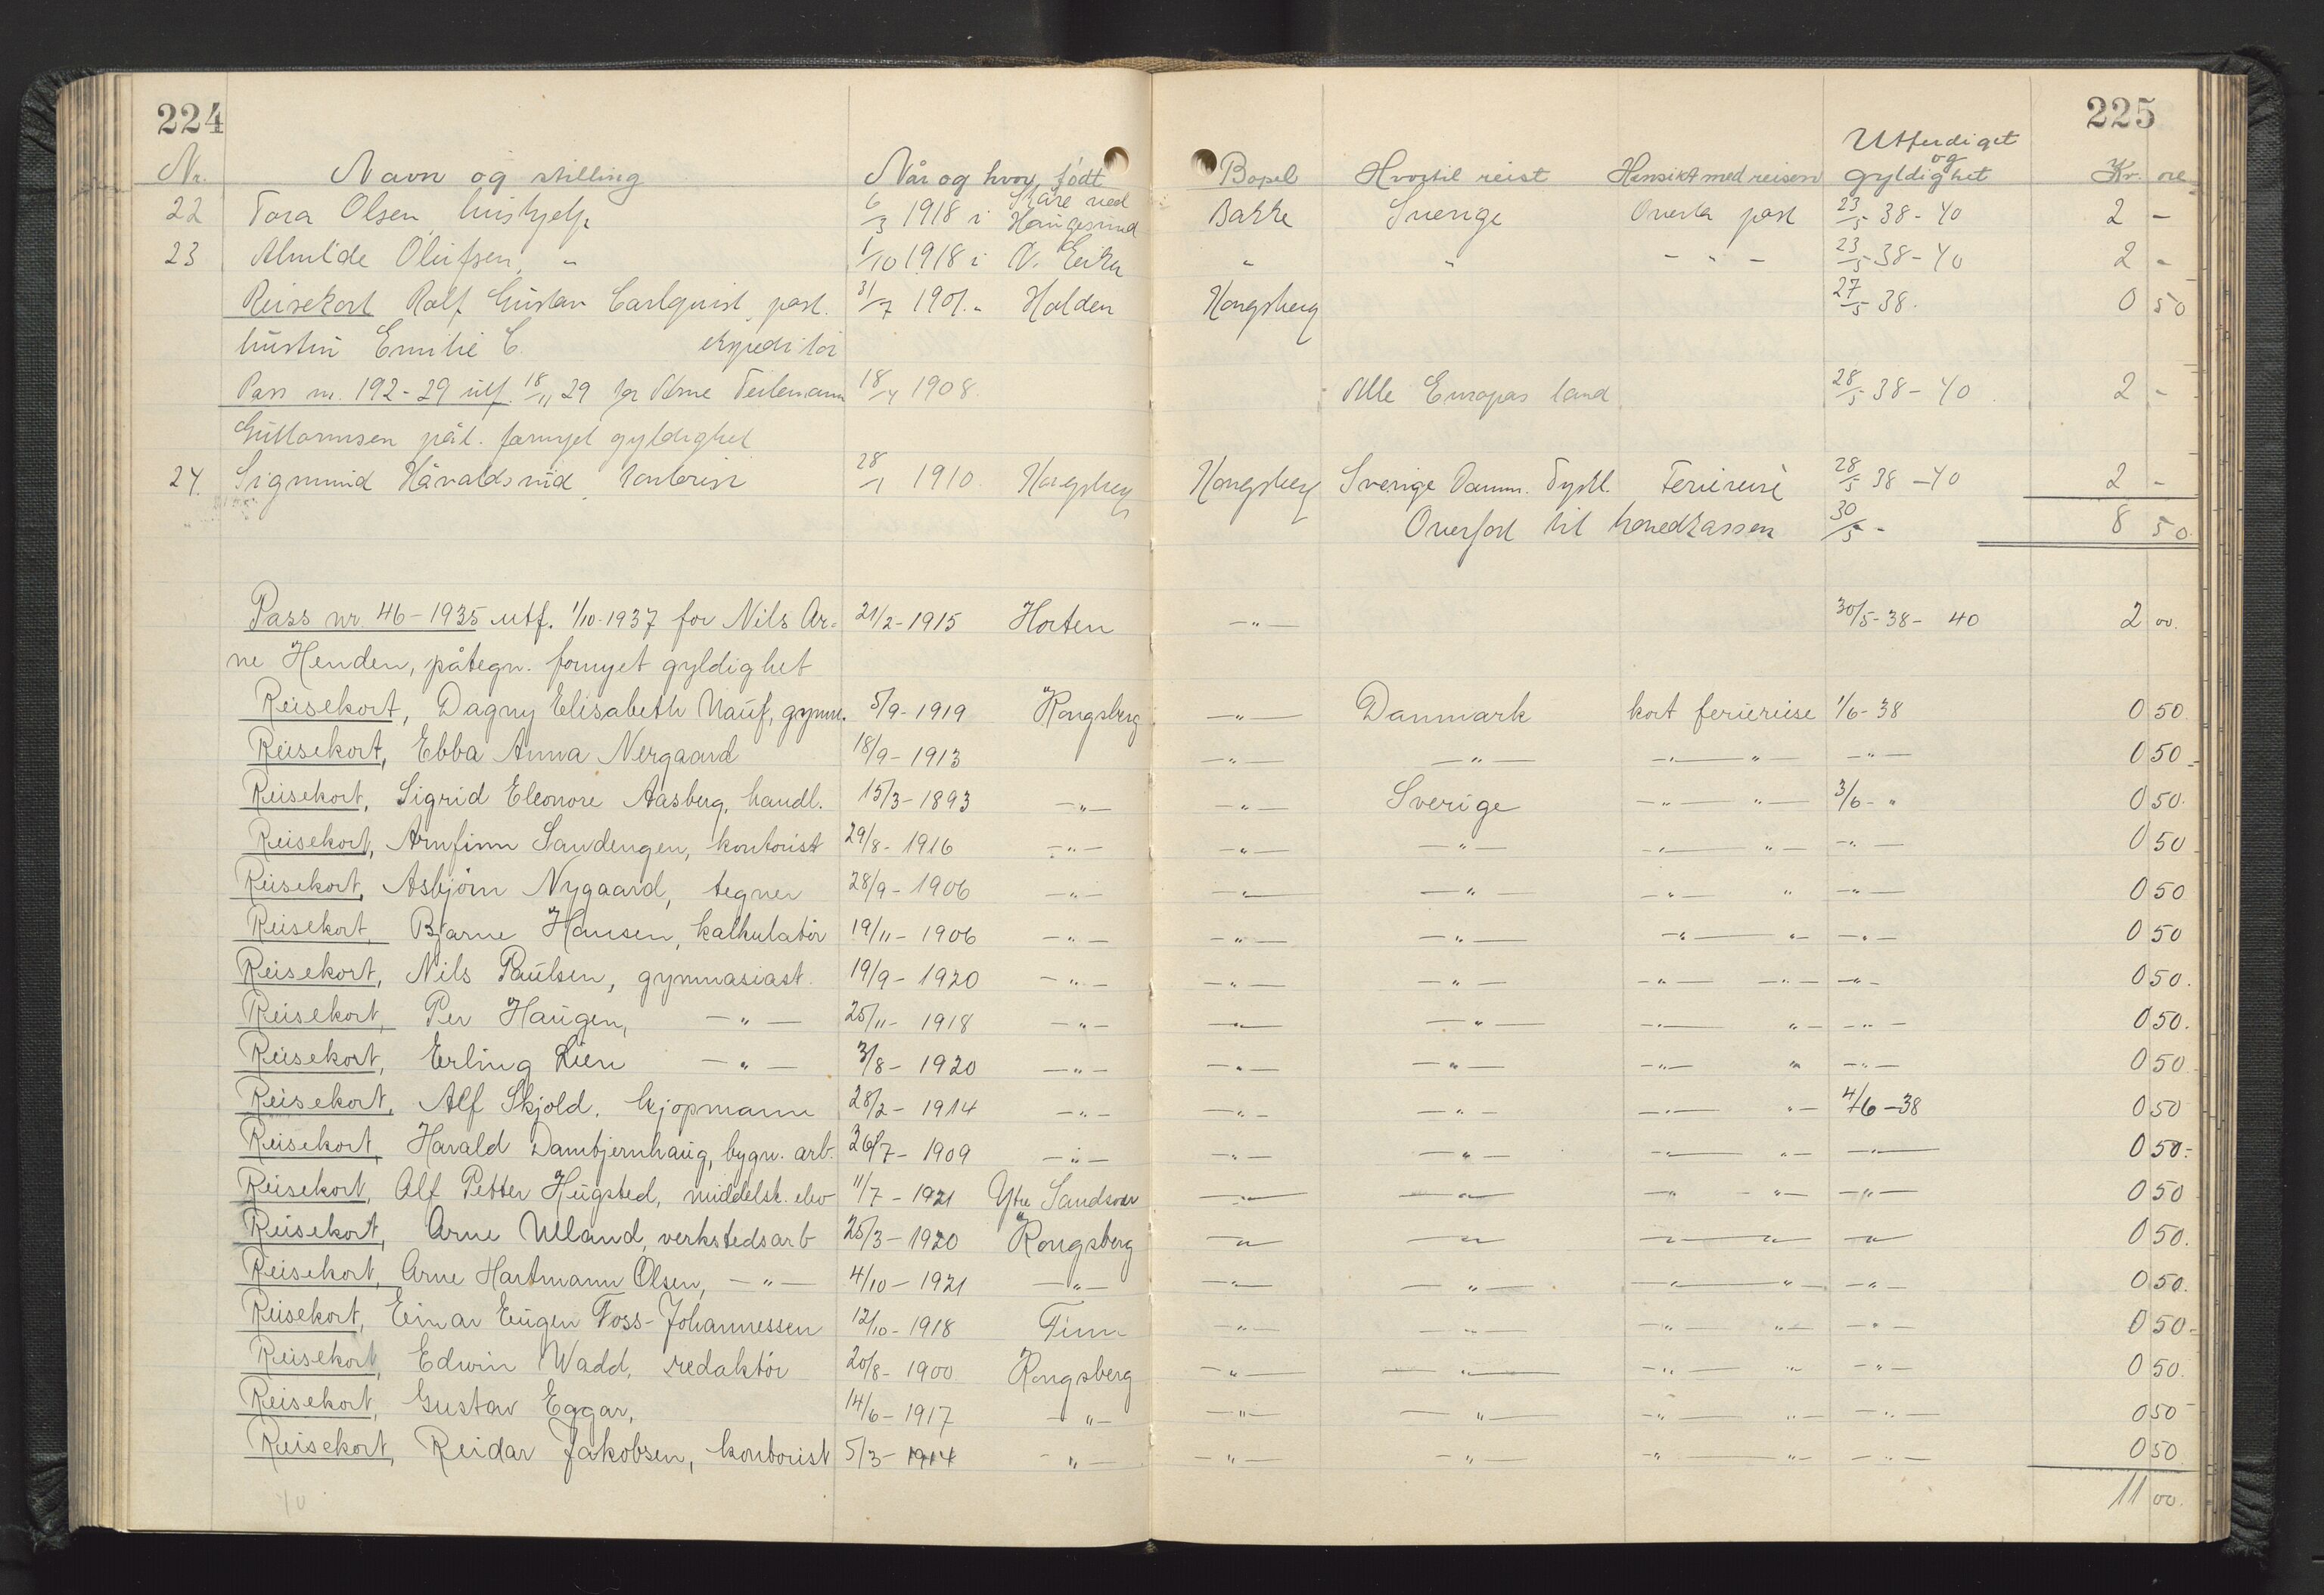 224
225
Nr. Navn og stilling Når og hvor født Bopel Hvortil reist Hensikt med reisen Utferdiget og gyldighet Kr. øre
22 Tora Olsen, hushjelp 6/3 1918 i Skåre ved Haugesund Bakke Sverige Overta post 23/5 38-40 2 -
23 Almilde Olufsen, " 1/10 1918 i Ø. Eiker " " - " - 23/5 38-40 2 -
Reisekort Rolf Gustav Carlquist, post. 31/7 1901 " Halden Kongsberg 27/5 38. 0 50
hustru Emilie C. ekspeditør
Pass nr. 192-29 utf. 18/11 29 for Arne Teilemann 18/4 1908. Alle Europas land 28/5 38-40 2 -
Guttormsen påt. fornyet gyldighet
24. Sigmund Håvaldsrud, kontorist 28/1 1910. Kongsberg Kongsberg Sverige Danm. Tyskl. Feriereise 28/5 38-40 2 -
Overført til hovedkassen 30/5 - 8 50.
Pass nr 46-1935 utf. 1/10-1937 for Nils Ar- 21/2-1915 Horten -"- 30/5-38- 40 2 00.
ne Henden, påtegn. fornyet gyldighet
Reisekort, Dagny Elisabeth Nauf, gymn. 5/9-1919 Kongsberg -"- Danmark kort feriereise 1/6-38 0 50.
Reisekort, Ebba Anna Nergaard 18/9-1913 -"- -"- -"- "- -"- 0 50
Reisekort, Sigrid Eleonore Aasberg, handl. 15/3-1893 -"- -"- Sverige -"- "- 3/6-" 0 50.
Reisekort, Arnfinn Sandengen, kontorist 29/8-1916 -"- -"- -"- -"- "- -"- 0 50
Reisekort, Asbjörn Nygaard, tegner 28/9-1906 -"- -"- -"- -"- " -"- 0 50
Reisekort, Bjarne Hansen, kalkulatör 19/11-1906 -"- -"- -"- -"- "- -"- 0 50
Reisekort, Nils Paulsen, gymnasiast. 19/9-1920 -"- -"- -"- -"- -"- -"- 0 50.
Reisekort, Per Haugen, -"- 25/11-1918 -"- -"- -"- -"- "- -"- 0 50.
Reisekort, Erling Lien -"- 3/8-1920 -"- -"- -"- -"- " -"- 0 50
Reisekort, Alf Skjold, kjøpmann 28/2-1914 -"- -"- -"- -"- "- 4/6-38 0 50
Reisekort, Harald Dambjernhaug, bygn. arb. 26/7-1909 -"- -"- -"- -"- "- -"- 0 50-
Reisekort, Alf Petter Hugsted, middelsk. elev 11/7-1921 Ytre Sandsvær -"- -"- -"- "- -"- 0 50
Reisekort, Arne Ulland, verkstedsarb 25/3-1920 Kongsberg -"- -"- -"- "- -"- 0 50.
Reisekort, Arne Hartmann Olsen, -"- 4/10-1921 -"- -"- -"- -"- "- -"- 0 50.
Reisekort, Einar Eugen Foss-Johannessen 12/10-1918 Tinn -"- -"- -"- "- -"- 0 50-
Reisekort, Edwin Wadd, redaktör 20/8-1900 Kongsberg -"- -"- -"- "- -"- 0 50.
Reisekort, Gustav Eggar, 14/6-1917 -"- -"- -"- -"- "- -"- 0 50
Reisekort, Reidar Jakobsen, kontorist 5/3-1914 -"- -"- -"- -"- "- -"- 0 50.
11 00.